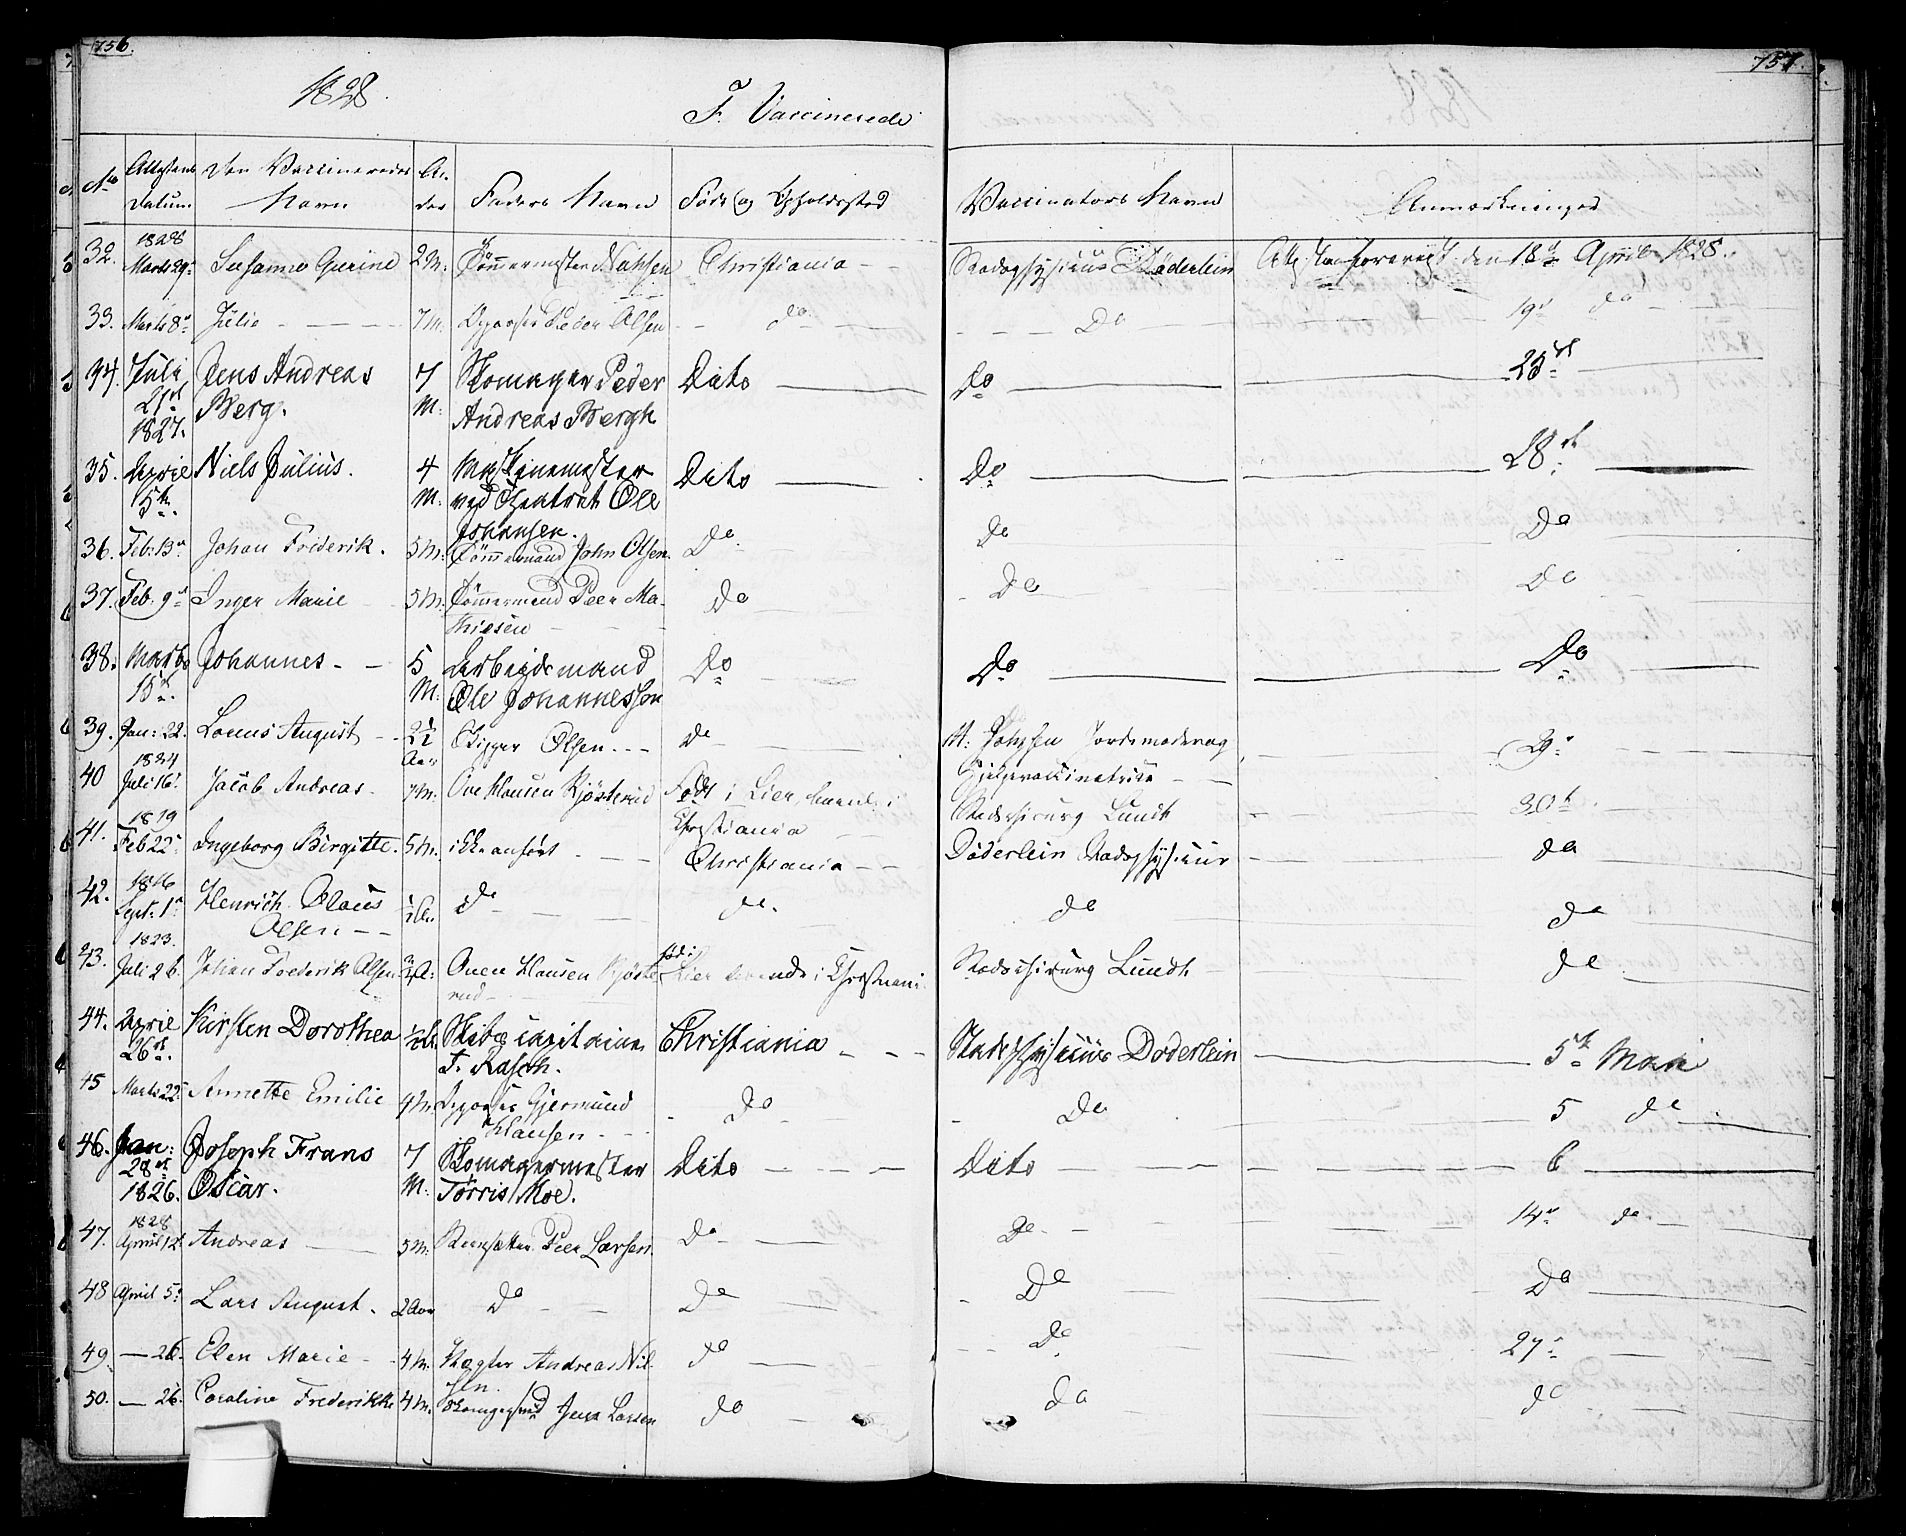 756.
757.
1828.
F. Vaccinerede
No
Attestens Datum.
Den Vaccineredes Navn
Al-der
Faders Navn
Føde og Opholdssted
Vaccinators Navn
Anmærkninger
32. 1828 Marts 29. Susanne Gurine 2 M. Tømmermester Christiania - - Stadsphysicus Döderlein Attesten forevist den 18de April 1828.
33. Marts 8 Julie - - - 7 M. Peder Olsen - - do - - - Do 19 do
34. Juli 21 1827. Jens Andreas Berg. 7 M. Skomager Peder Andreas Bergh Dito Do 25
35. April 5te. Niels Julius. 4 M. Maskinemester ved Theatret Ole Johansen. Dito Do 28
36. Feb: 13 Johan Frederik. 5 M: Tømmermand John Olsen. Do do Do
37. Feb. 9 Inger Marie 5 M. Tømmermand Peer Ma-thiesen - - Do Do Do
38. Marts 15 Johannes - - 5 M. Arbeidsmand Ole Johannessen Do Do Do
39. Jan: 22. August - - Aar Olsen - - - do Jordemoder og
40 1824 Juli 16 Jacob Andreas. 7 M. Klausen Født i Lier, boende i Christiania Stadschirurg Lundt 30
41. 1819 Feb 22 Ingeborg Birgitte. 5 M. ikke anført - - Christiania - - Döderlein Stadsphysicus do
42. 1816 Sept. 1 Henrich Olaus Olsen - - do do. do do
43. 1823. Juli 26. Johan Frederik Olsen Klausen fød i Lier boende i Christiania Stadschirurg Lundt do
44. April 26 Kirsten Dorothea Skibscapitain F. Rasch. Christiania - - - Stadsphysicus Döderlein 5te Mai
45 Marts 22 Annette Emilie 4 M. Gjermund Klausen - - - Do - Do 5 do
46. Jan: 28 1826. Joseph Frans Oscar. 7 M. Skomagermester Tørris Moe. Dito - - - Dito - - 6
47. 1828 April 12 Andreas 5 M. Peer Larsen. Do - Do - 14 do.
48 April 5. Lars August. 2 Aar Do - Do Do Do
49. - 26. Elen Marie - 4 M. Andreas Nil-sen. do Do 27
50. - 26. Caroline Frederikke 4 M. Jens Larsen do - do do